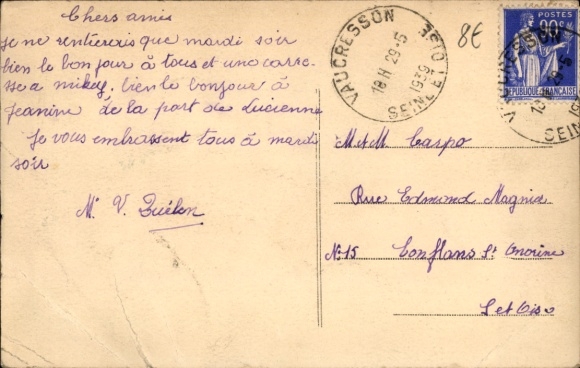 Chers amis
je ne rentierais que mardi soir
bien le bonjour à tous et une cares-
se a mikey, bien le bonjour à
Jeanine de la part de Lucienne
Je vous embrassent tous à mardi
soir
Mr V.
8€
VAUCRESSON
18H 29-5
1939
SEINE ET OISE
POSTES
90c
REPUBLIQUE FRANÇAISE
VAUCRESSON
M et M Carpo
Rue Edmond Magnia
No 15 Conflans St Onorine
S et Oise